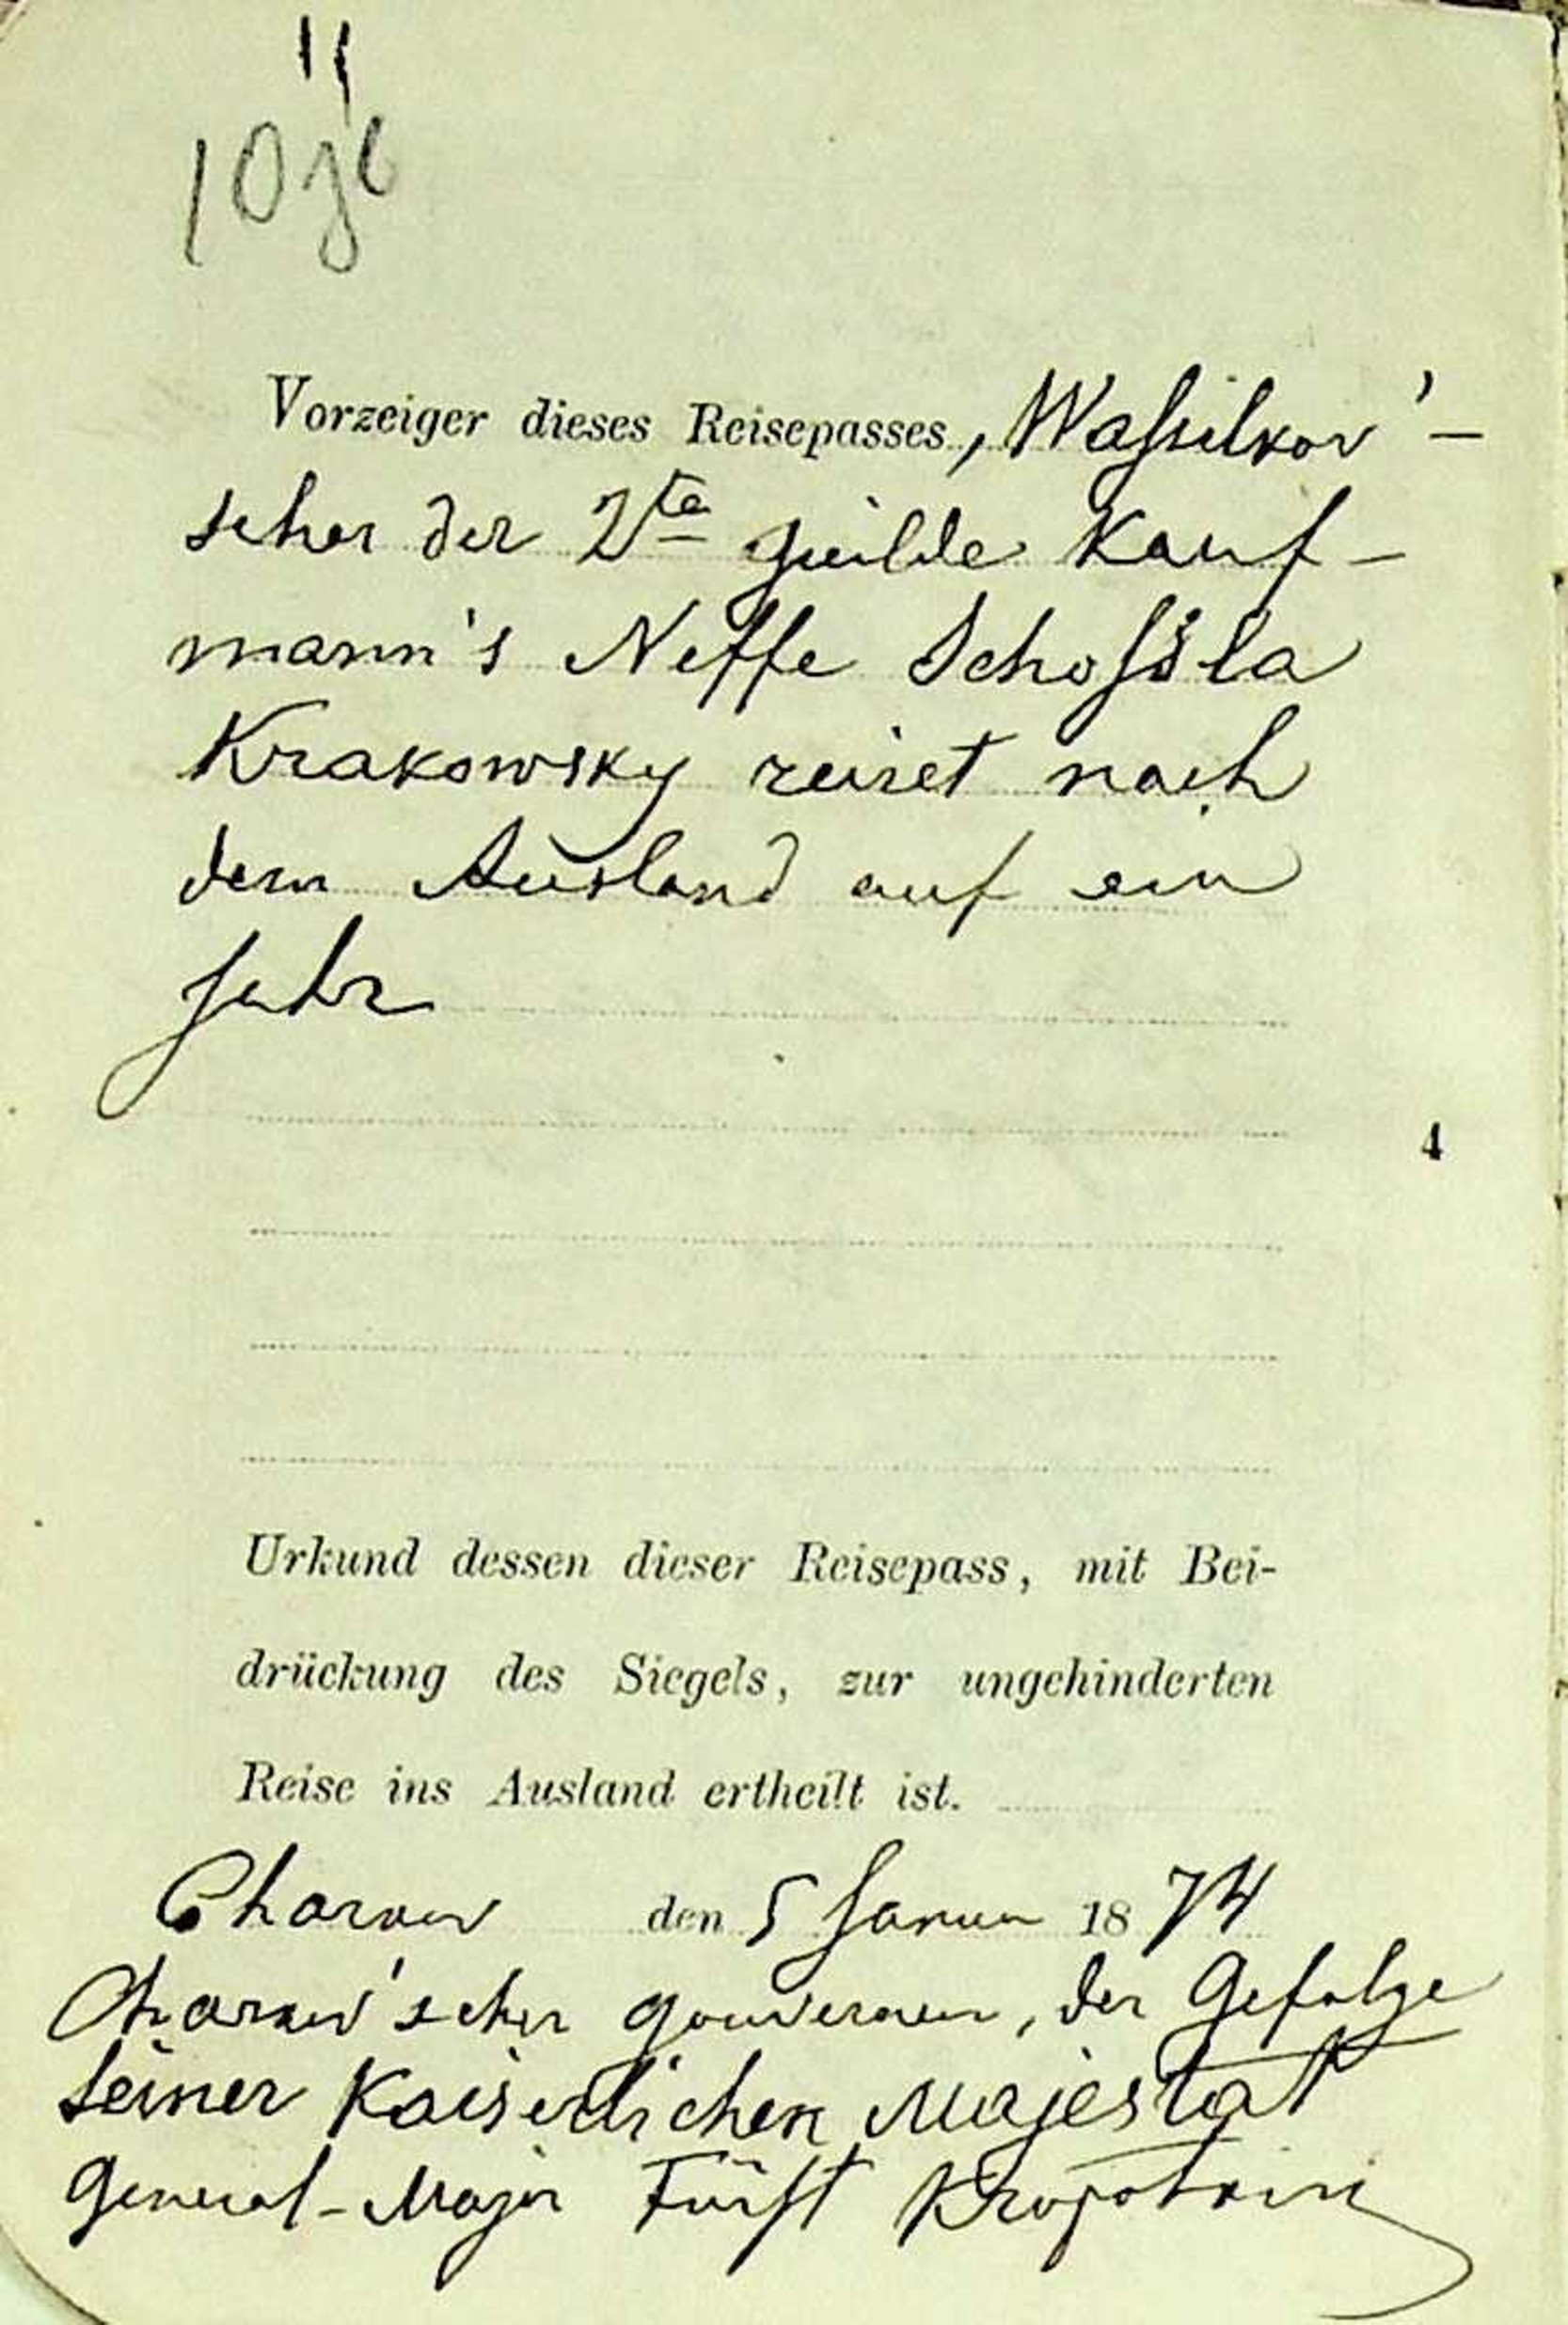 Vorzeiger dieses Reisepasses, Wassilkov'-
scher der 2te Guilde Kauf-
mann's Neffe
Krakowsky reiset nach
dem Ausland auf ein
Jahr
4
Urkund dessen dieser Reisepass, mit Bei-
drückung des Siegels, zur ungehinderten
Reise ins Ausland ertheilt ist.
Charkow den 5 Januar 1874
Charkow'scher Gouverneur, der Gefolge
Seiner Kaiserlichen Majestät
General-Major Fürst Kropotkin